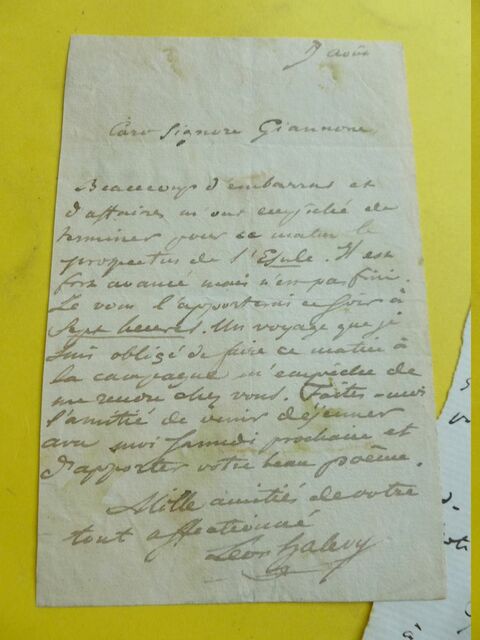 août
Caro Signore Giannone
Beaucoup d'embarras et
d'affaires m'ont empêché de
terminer pour ce matin le
prospectus de l'Esule. Il est
fort avancé mais n'en pas fini.
Je vous l'apporterai ce soir à
Sept heures. Un voyage que je
suis obligé de faire ce matin à
la campagne m'empêche de
me rendre chez vous. Faites-moi
l'amitié de venir déjeuner
avec moi Samedi prochain et
d'apporter votre beau poême.
Mille amitiés de votre
tout affectionné
Léon Halevy